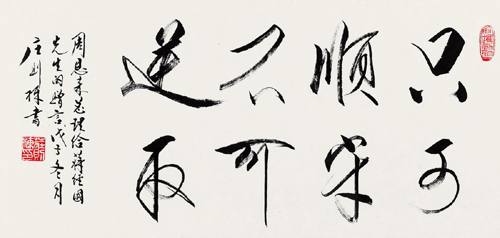 只可
顺守
不可
逆取
周恩来总理给蒋经国
先生的赠言戊子冬月
庄则栋书